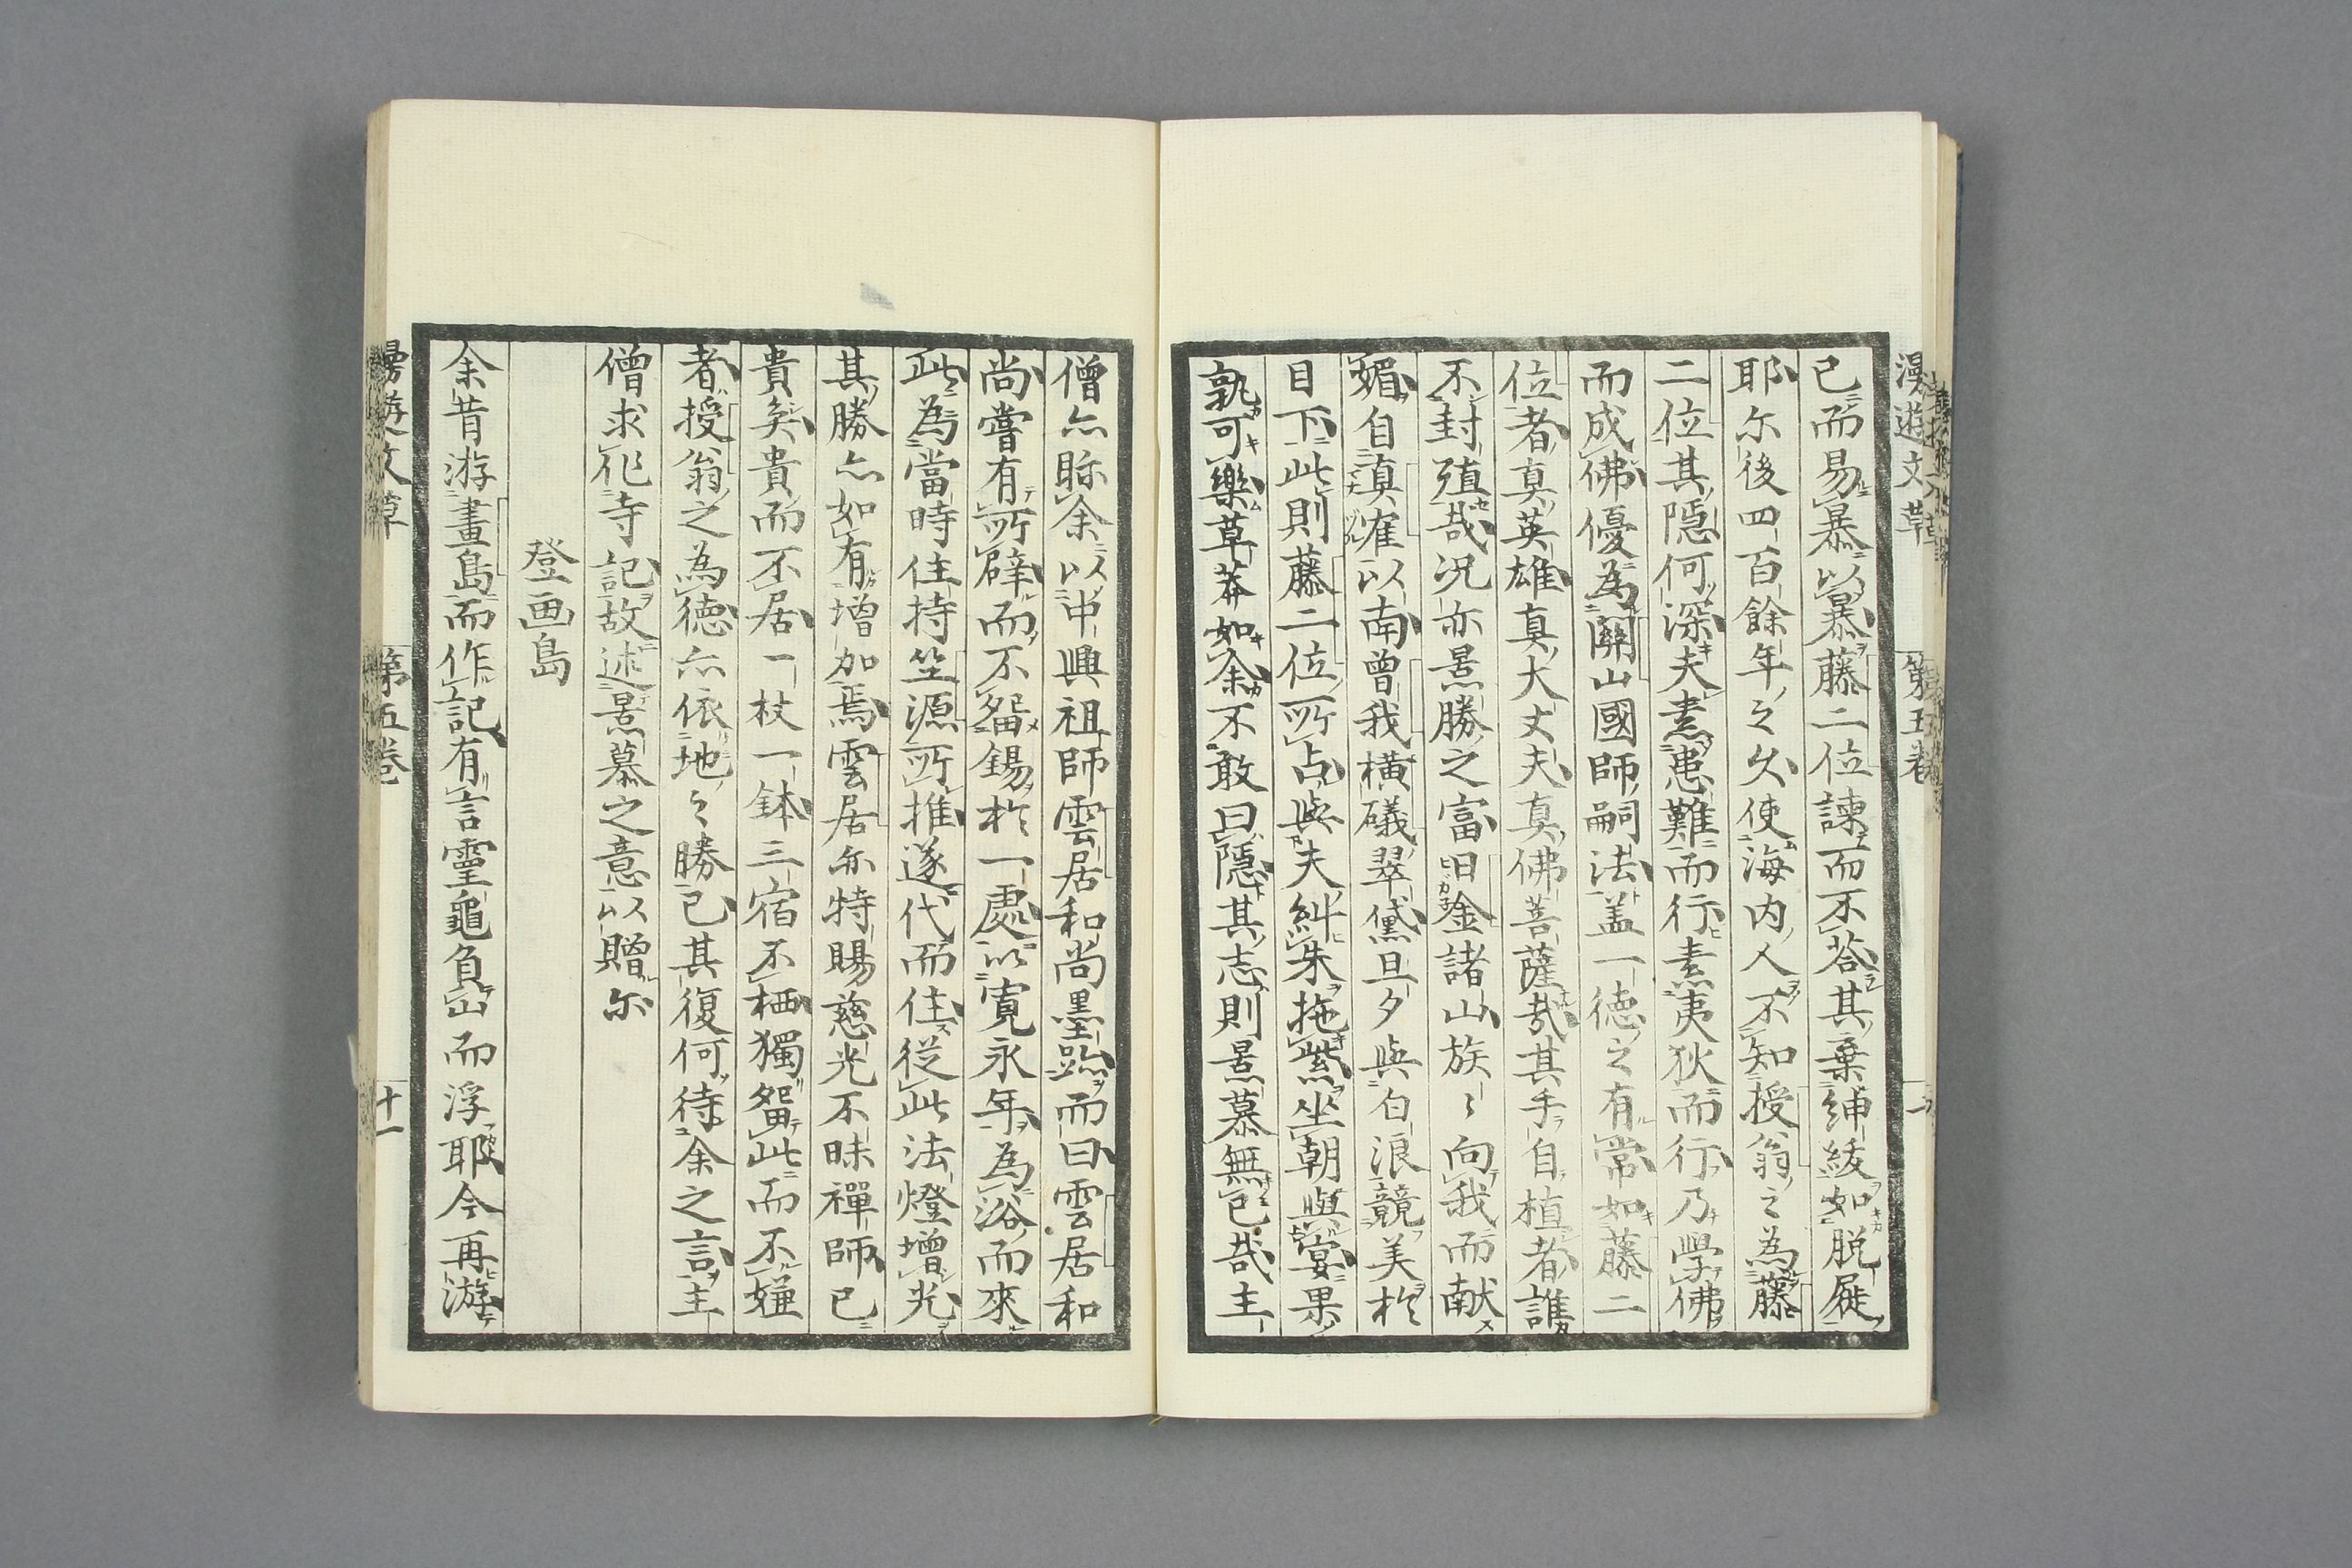 已而易暴以暴藤二位諌而不答其棄紳綾如脱屣
耶尓後四百餘年之久使海内人不知授翁之為藤
二位其隱何深夫素患難而行素夷狄而行乃學佛
而成佛優為關山國師嗣法盖一徳之有常如藤二
位者真英雄真大丈夫真佛菩薩哉其手自植者誰
不封殖哉況亦景勝之富日金諸山族〻向我而献
媚自真崔以南曽我横礒翠黛旦夕與白浪競美於
目下此則藤二位所占與夫紆朱拖紫坐朝與宴果
孰可樂草莽如余不敢曰隱其志則景慕無已哉主
僧亦眎余以中興祖師雲居和尚墨跡而曰雲居和
尚嘗有所辟而不畱錫於一處以寛永年為浴而來
此為當時住持笠源所推遂代而住従此法燈增光
其勝亦如有增加焉雲居亦特賜慈光不昧禪師已
貴矣貴而不居一杖一鉢三宿不栖獨畱此而不嫌
者授翁之為徳亦依地〻勝已其復何待余之言主
僧求作寺記故述景慕之意以贈尓
登画島
余昔游畫島而作記有言靈龜負山而浮耶今再游
漫遊文草
第五巻
十一
漫遊文草
第五巻